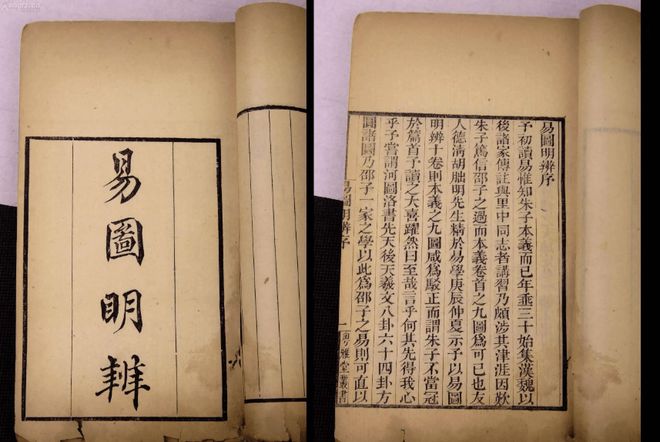 易圖明辨
易圖明辨序
予初讀易惟知朱子本義而已年埀三十始集漢魏以
後諸家傳註與里中同志者講習乃頗渉其津涯因歎
朱子篤信邵子之過而本義卷首之九圖爲可已也友
人德淸胡朏明先生精於易學庚辰仲夏示予以易圖
明辨十卷則本義之九圖咸爲駁正而謂朱子不當冠
於篇首予讀之大喜躍然曰至哉言乎何其先得我心
乎予嘗謂河圖洛書先天後天羲文八卦六十四卦方
圓諸圖乃邵子一家之學以此爲邵子之易則可直以
易圖明辨序
一
粤雅堂叢書